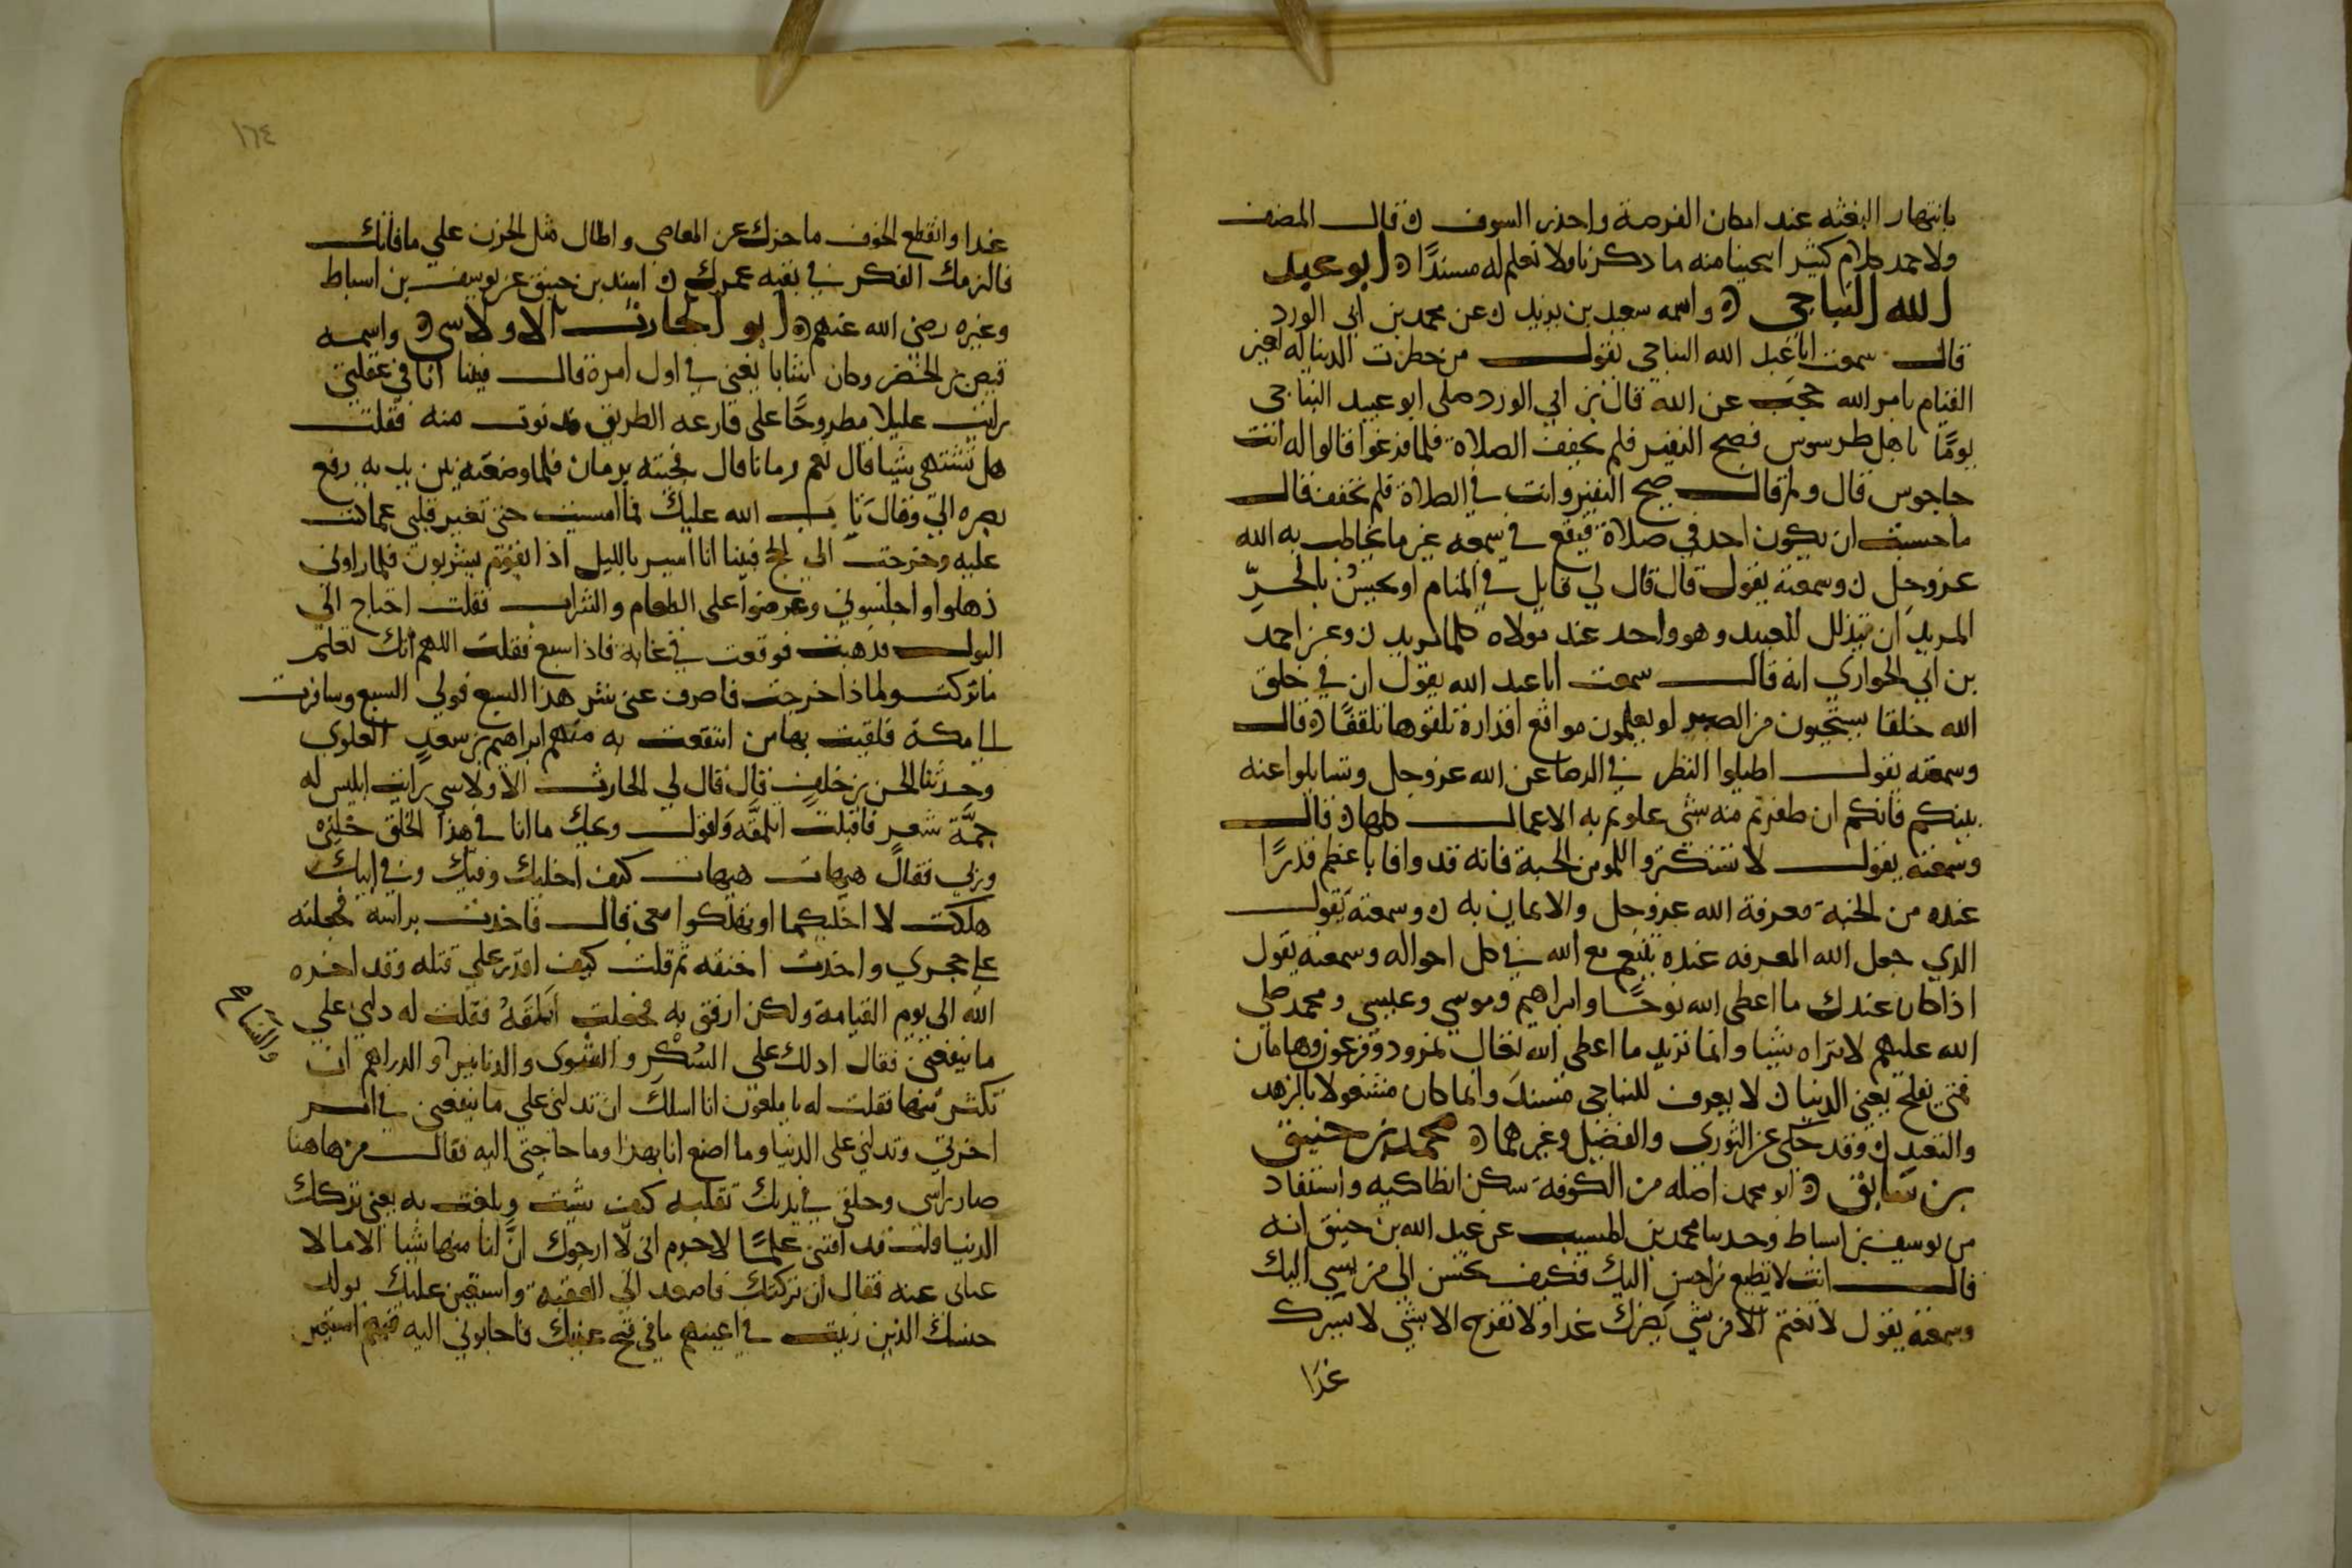 بانتهار البغته عند امكان الفرصة واحذر السوف ه قال المصنف
ولاحمد كلام كثير انحينا منه ما ذكرنا ولا نعلم له مسندًا ه ابو عبد
الله النباجي ه واسمه سعيد بن يزيد ه عن محمد بن ابي الورد
قال سمعت ابا عبد الله النباجي يقول من خطرت الدنيا له بغير
القيام بامر الله حجب عن الله قال بن ابي الورد صلى ابو عبيد النباجي
يومًا باهل طرسوس فصيح النفير فلم يخفف الصلاة فلما فرغوا قالوا له انت
جاجوس قال ولم قال صيح النفير وانت في الصلاة فلم تخفف قال
ما حسبت ان يكون احد في صلاة فيقع في سمعه غير ما يخاطب به الله
عز وجل ه وسمعته يقول قال قال لي قايل في المنام او يحسن بالحرِّ
المريد ان يتذلل للعبيد وهو واجد عند مولاه كلما يريد ه وعن احمد
بن ابي الحواري انه قال سمعت ابا عبد الله يقول ان في خلق
الله خلقا يستحيون من الصبر لو يعلمون مواقع اقداره تلقوها تلقفًا ه قال
وسمعته يقول اطيلوا النظر في الرضا عن الله عز وجل وتسايلوا عنه
بينكم فانكم ان ظفرتم منه بشي علوتم به الاعمال كلها ه قال
وسمعته يقول لا تستكثروا للمومن الجنة فانه قد وافا باعظم قدرًا
عنده من الجنة معرفة الله عز وجل والايمان به ه وسمعته يقول
الذي جعل الله المعرفه عنده يتنعم مع الله في كل احواله وسمعته يقول
اذا كان عندك ما اعطى الله نوحًا وابراهيم وموسى وعيسى ومحمد صلى
الله عليهم لا تراه شيا وانما تريد ما اعطى الله تعالى نمرود وفرعون وهامان
فمتى تفلح يعني الدنيا ه لا يعرف للنباجي مسند وانما كان مشغولا بالزهد
والتعبد ه وقد حكى عن الثوري والفضيل وغيرهما ه محمد بن خبيق
بن سابق ه ابو محمد اصله من الكوفة سكن انطاكيه واستفاد
من يوسف بن اسباط وحدثنا محمد بن المسيب عن عبد الله بن خبيق انه
قال انت لا تطيع من احسن اليك فكيف تحسن الى من يسي اليك
وسمعته يقول لا تغتم الا من شي يضرك غدا ولا تفرح الا بشي لا يسرك
غدًا
١٦٤
غدا وانفع الخوف ما حجزك عن المعاصي واطال مثل الحزن على ما فاتك
فالزمك الفكر في بقيه عمرك ه اسند بن خبيق عن يوسف بن اسباط
وغيره رضى الله عنهم ه ابو الحارث الاولاسي ه واسمه
فيض بن الخضر وكان شابا يغني في اول امره قال فبينا انا في غفلتي
رايت عليلا مطروحًا على قارعه الطريق فدنوت منه فقلت
هل تشتهي شيا قال نعم رمانا قال فجيته برمان فلما وضعته بين يديه رفع
بصره الي وقال تاب الله عليك فما امسيت حتى تغير قلبي عما كنت
عليه وخرجت الى الحج فبينا انا اسير بالليل اذا بقوم يشربون فلما راوني
ذهلوا واجلسوني وعرضوا على الطعام والشراب فقلت احتاج الى
البول فذهبت فوقعت في غابه فاذا سبع فقلت اللهم انك تعلم
ما تركت ولماذا خرجت فاصرف عني شر هذا السبع فولي السبع وسافرت
الى مكة فلقيت بها من انتفعت به منهم ابراهيم بن سعد العلوي
وحدثنا الحسن بن خلف قال قال لي الحارث الاولاسي رايت ابليس له
جمَّة شعر فاقبلت املقه واقول ويحك ما انا في هذا الخلق خلني
وربي فقال هيهات هيهات كيف اخليك وفيك وفي ابيك
هلكت لا اخليكما او تهلكوا معي قال فاخذت براسه فجعلته
على حجري واخذت اخنقه ثم قلت كيف اقدر على قتله وقد اخره
الله الى يوم القيامة ولكن ارفق به فجعلت املقه فقلت له دلني على
ما ينفعني فقال ادلك على السُكر والشوى والدنانير والدراهم ان
تكثر منها فقلت له يا ملعون انا اسلك ان تدلني على ما ينفعني في امر
اخرتي وتدلني على الدنيا وما اصنع انا بهذا وما حاجتي اليه فقال من هاهنا
صار راسي وحلقي في يديك تقلبه كيف شيت وبلغت به يعني تركك
الدنيا قلت قد افتني علمًا لاجرم اني لا ارجوك انَّ انا منها شيا الا ما لا
غنائ عنه فقال ان تركتك فاصعد الى العقبة واستعين عليك بولد
جنسك الذين زينت في اعينهم ما في قبح عينيك فاجابوني اليه فبهم استعين
والنساء